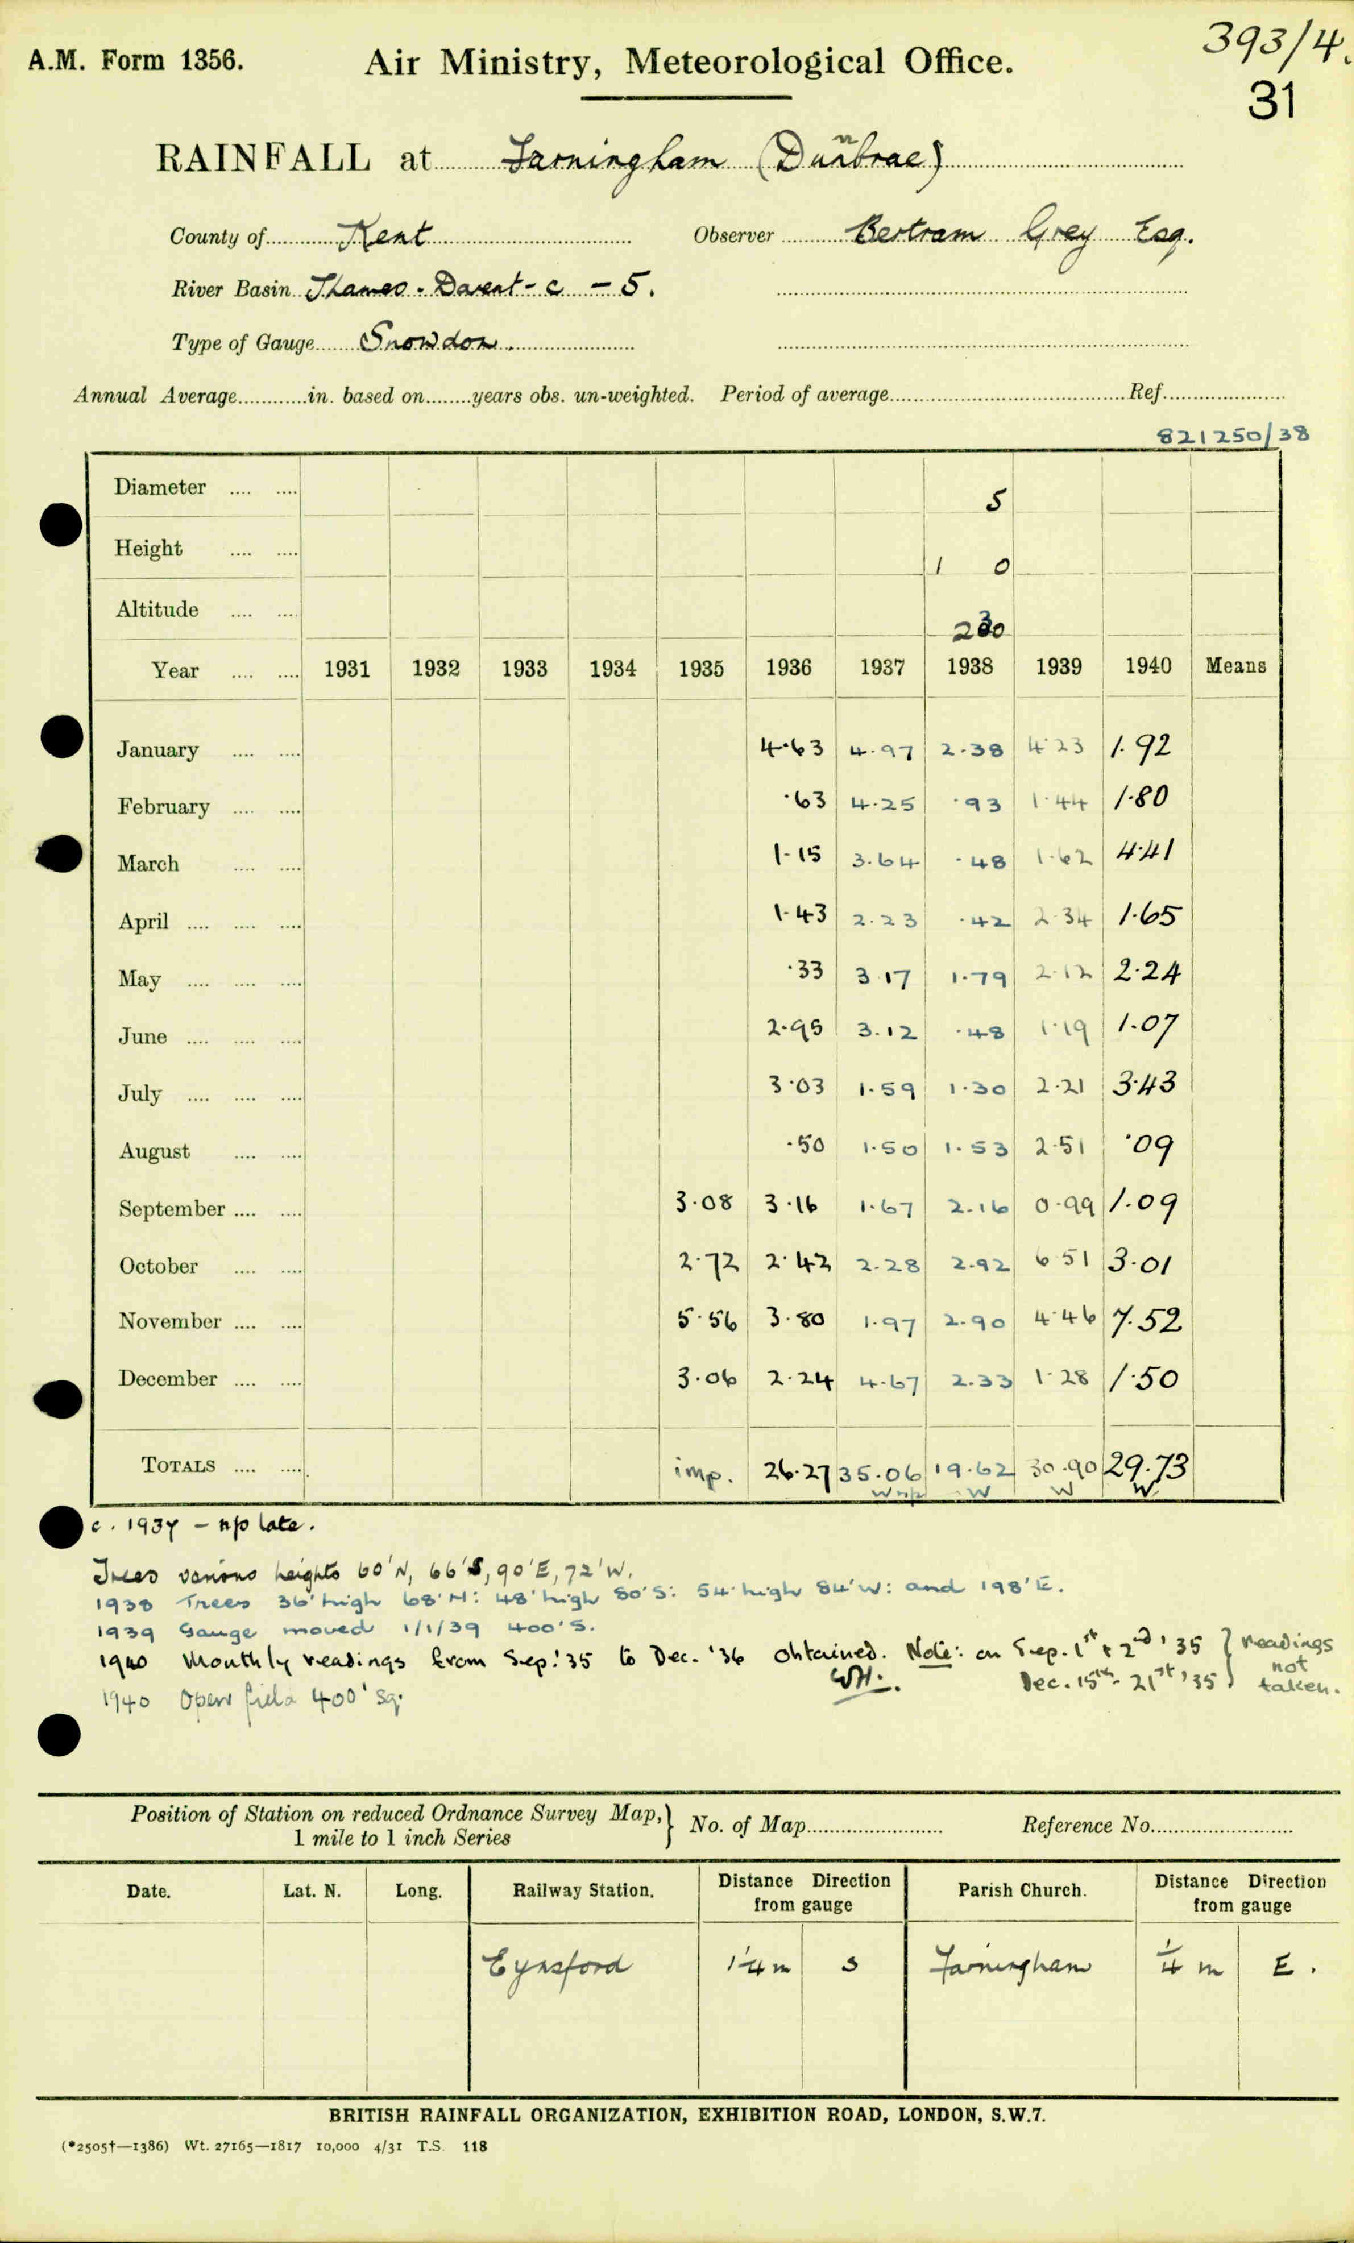 393/4.
A.M. Form 1356. Air Ministry, Meteorological Office.
31
RAINFALL at Farningham (Dunbrae)
County of Kent Observer Bertram Grey Esq.
River Basin Thames - Darent - c - 5.
Type of Gauge Snowdon.
Annual Average in. based on years obs. un-weighted. Period of average Ref.
821250/38
Diameter 5
Height 1 0
Altitude 230
Year 1931 1932 1933 1934 1935 1936 1937 1938 1939 1940 Means
January 4.63 4.97 2.38 4.23 1.92
February .63 4.25 .93 1.44 1.80
March 1.15 3.64 .48 1.62 4.41
April 1.43 2.23 .42 2.34 1.65
May .33 3.17 1.79 2.12 2.24
June 2.95 3.12 .48 1.19 1.07
July 3.03 1.59 1.30 2.21 3.43
August .50 1.50 1.53 2.51 .09
September 3.08 3.16 1.67 2.16 0.99 1.09
October 2.72 2.42 2.28 2.92 6.51 3.01
November 5.56 3.80 1.97 2.90 4.46 7.52
December 3.06 2.24 4.67 2.33 1.28 1.50
TOTALS imp. 26.27 35.06 19.62 30.90 29.73
W n/p W W W
c. 1937 - n/p late.
Trees various heights 60'N, 66'S, 90'E, 72'W.
1938 Trees 36' high 68'N: 48' high 80'S: 54' high 84'W: and 198'E.
1939 Gauge moved 1/1/39 400'S.
1940 Monthly readings from Sep. '35 to Dec. '36 obtained. Note: on Sep. 1st + 2nd '35 } readings
WH. Dec. 15th - 21st '35 } not taken.
1940 Open field 400' sq.
Position of Station on reduced Ordnance Survey Map, } No. of Map Reference No.
1 mile to 1 inch Series
Date. Lat. N. Long. Railway Station. Distance Direction from gauge Parish Church. Distance Direction from gauge
Eynsford 1¼ m S Farningham ¼ m E.
BRITISH RAINFALL ORGANIZATION, EXHIBITION ROAD, LONDON, S.W.7.
(*2505†—1386) Wt. 27165—1817 10,000 4/31 T.S. 118